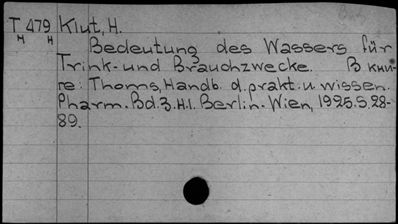 T 479 Klut, H.
M H
Bedeutung des Wassers für
Trink- und Brauchzwecke. В кни-
ге: Thoms, Handb. d. prakt. u. wissen.
Pharm. Bd. 3. H.I. Berlin- Wien, 1925. S. 28-
89.